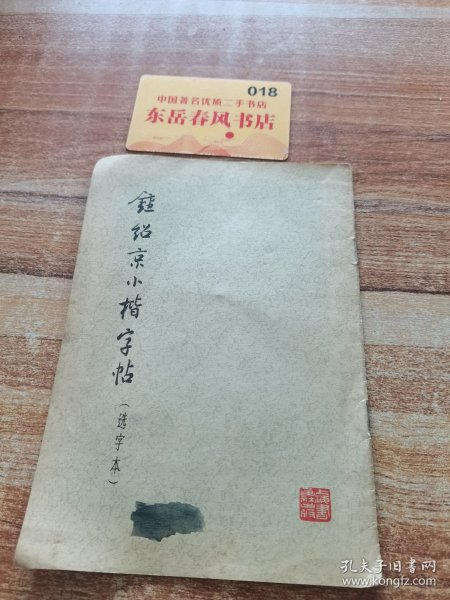 018
中国著名优质二手书店
东岳春风书店
鍾紹京小楷字帖
(选字本)
孔夫子旧书网
www.kongfz.com